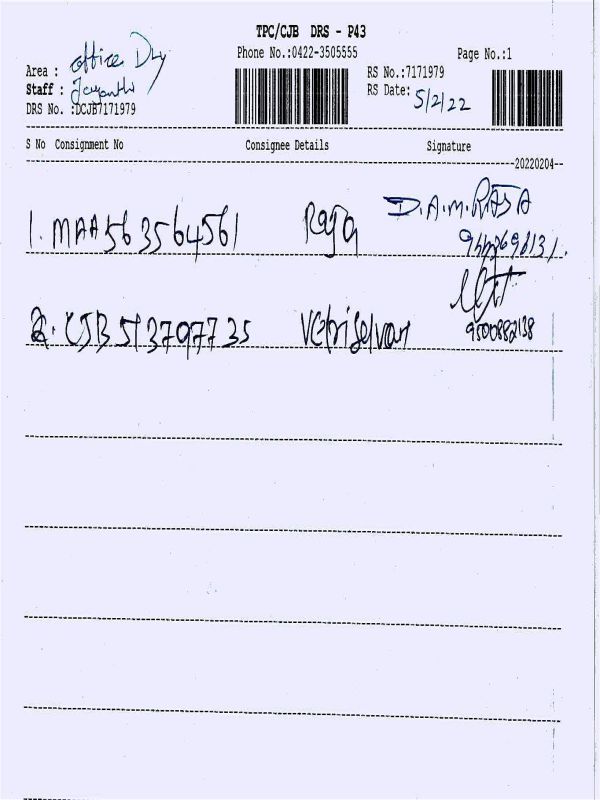 TPC/CJB DRS - P43
Phone No.:0422-3505555 Page No.:1
Area : office Dly RS No.:7171979
Staff : Jayanthi RS Date: 5/2/22
DRS No. :DCJB7171979
S No Consignment No Consignee Details Signature
20220204
1. MAA563564561 Raja D.A.M.RAJA
2. CJB513797735 Vetriselvan
9500882138